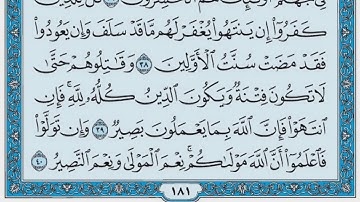 كَفَرُوٓا۟ إِن يَنتَهُوا۟ يُغْفَرْ لَهُم مَّا قَدْ سَلَفَ وَإِن يَعُودُوا۟
فَقَدْ مَضَتْ سُنَّتُ ٱلْأَوَّلِينَ ٣٨ وَقَٰتِلُوهُمْ حَتَّىٰ
لَا تَكُونَ فِتْنَةٌ وَيَكُونَ ٱلدِّينُ كُلُّهُۥ لِلَّهِ فَإِنِ
ٱنتَهَوْا۟ فَإِنَّ ٱللَّهَ بِمَا يَعْمَلُونَ بَصِيرٌ ٣٩ وَإِن تَوَلَّوْا۟
فَٱعْلَمُوٓا۟ أَنَّ ٱللَّهَ مَوْلَىٰكُمْ نِعْمَ ٱلْمَوْلَىٰ وَنِعْمَ ٱلنَّصِيرُ ٤٠
١٨١